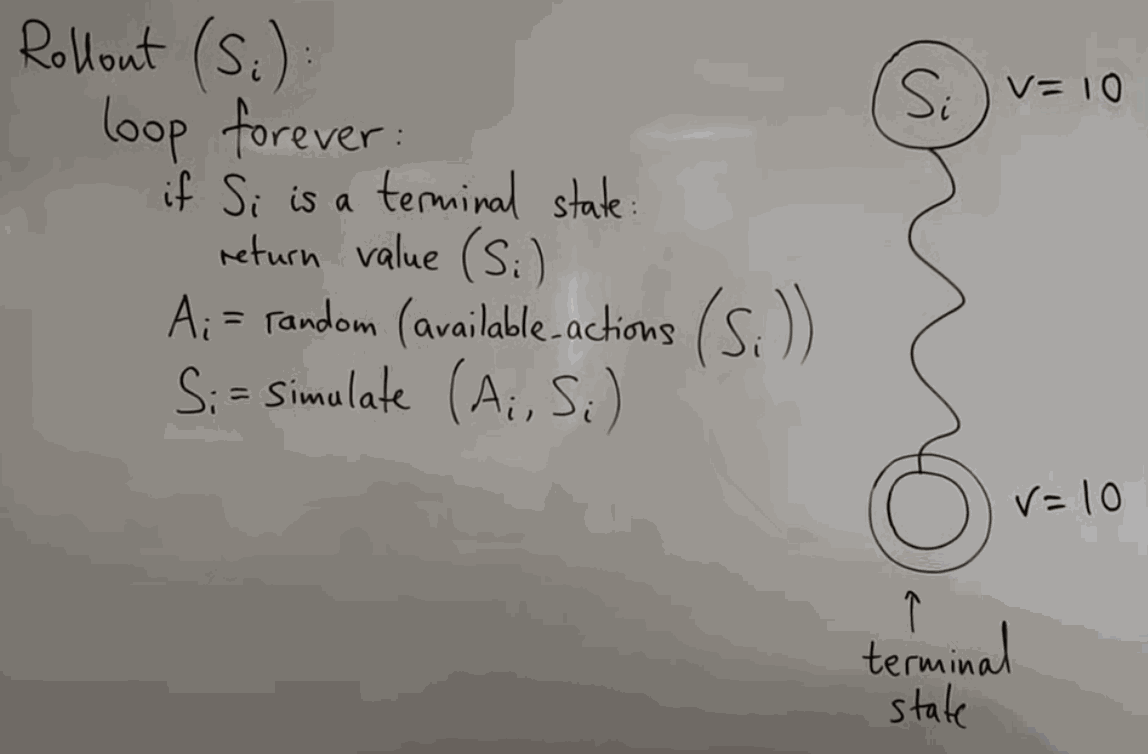 Rollout (Si):
loop forever:
if Si is a terminal state:
return value (Si)
Ai = random (available_actions (Si))
Si = simulate (Ai, Si)
Si v = 10
v = 10
↑
terminal
state